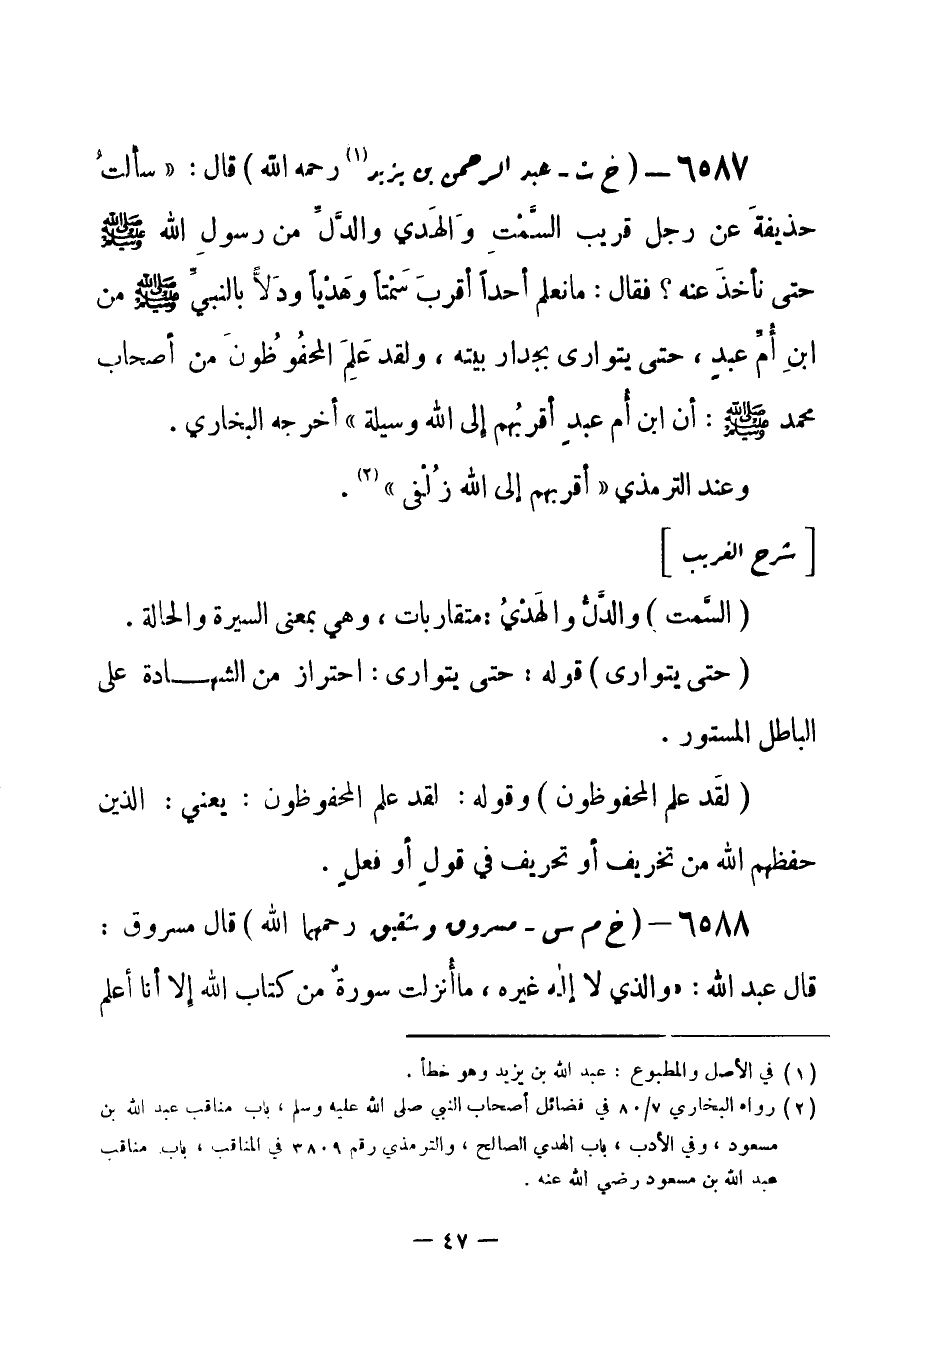 ٦٥٨٧ — ( خ ت - عبد الرحمن بن يزيد(١) رحمه الله ) قال : « سألتُ
حذيفةَ عن رجل قريب السَّمْتِ وَالهَدي والدَّلِّ من رسولِ الله ﷺ
حتى نأخذَ عنه ؟ فقال : مانعلم أحداً أقربَ سَمْتاً وهَدْياً ودَلاًّ بالنبيِّ ﷺ من
ابنِ أُمِّ عبدٍ ، حتى يتوارى بجدار بيته ، ولقد عَلِمَ المحفُوظُونَ من أصحاب
محمد ﷺ : أن ابن أُم عبدٍ أقربُهم إلى الله وسيلة » أخرجه البخاري .
وعند الترمذي « أقربهم إلى الله زُلْفى »(٢) .
[ شرح الغريب ]
( السَّمت ) والدَّلُّ والهَدْيُ : متقاربات ، وهي بمعنى السيرة والحالة .
( حتى يتوارى ) قوله : حتى يتوارى : احتراز من الشهـــادة على
الباطل المستور .
( لقَد علم المحفوظون ) وقوله : لقد علم المحفوظون : يعني : الذين
حفظهم الله من تخريف أو تحريف في قولٍ أو فعلٍ .
٦٥٨٨ — ( خ م س - مسروق وشقيق رحمهما الله ) قال مسروق :
قال عبد الله : « والذي لا إله غيره ، ماأُنزلت سورةٌ من كتاب الله إلا أنا أعلم
(١) في الأصل والمطبوع : عبد الله بن يزيد وهو خطأ .
(٢) رواه البخاري ٨٠/٧ في فضائل أصحاب النبي صلى الله عليه وسلم ، باب مناقب عبد الله بن
مسعود ، وفي الأدب ، باب الهدي الصالح ، والترمذي رقم ٣٨٠٩ في المناقب ، باب مناقب
عبد الله بن مسعود رضي الله عنه .
— ٤٧ —